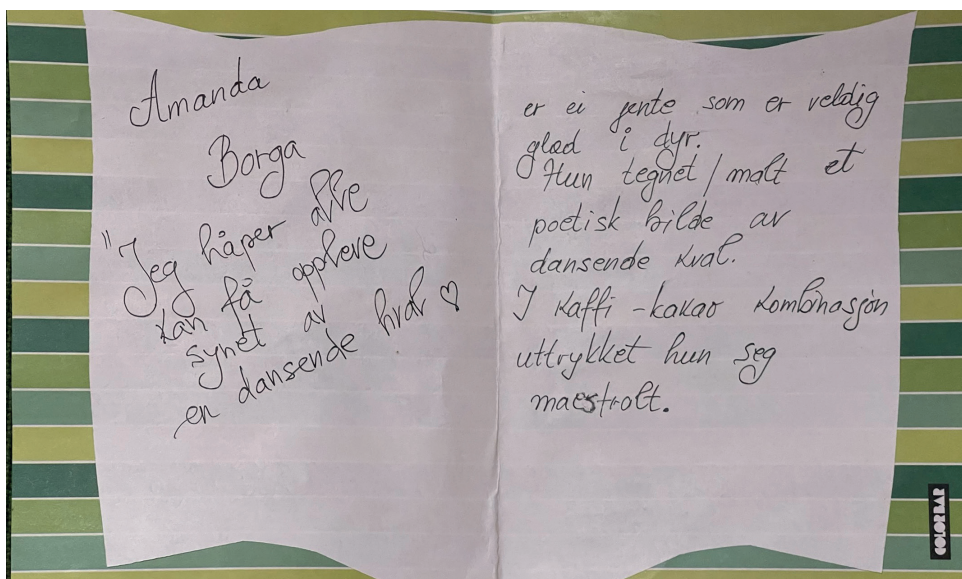 Amanda
Borga
"Jeg håper alle
kan få oppleve
synet av
en dansende hval ♡
er ei jente som er veldig
glad i dyr.
Hun tegnet / malt et
poetisk bilde av
dansende kval.
I kaffi - kakao kombinasjon
uttrykket hun seg
maestrolt.
COLORBAR